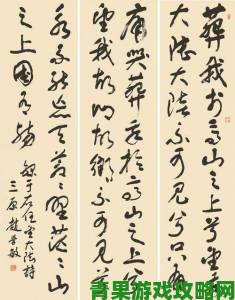 葬我於高山之上兮望我
大陸大陸不可見兮只有
痛哭葬我於高山之上兮
望我故鄉故鄉不可見兮
永不能忘天蒼蒼野茫茫山
之上國有殤
于右任望大陸詩
三原趙敏
青果游戏攻略网